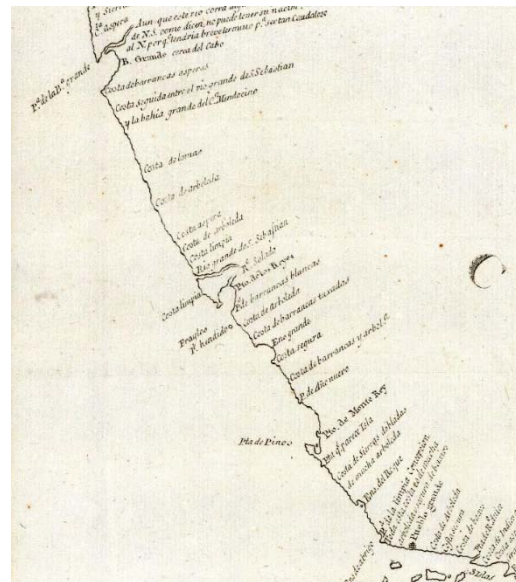 y Sierra
Cª aspera
Aun que este rio corra al
de N.S. como dicen, no puede tener su nacim
al N. porq̃ tendria breve termino pª ser tan Caudaloso
R. Grande cerca del Cabo
Pª de la Bª grande
Costa de barrancas asperas
Costa seguida entre el rio grande de S. Sebastian
y la bahia grande del Cº Mendocino
Costa de lomas
Costa de arboleda
Costa aspera
Costa de arboleda
Costa limpia
Rio grande de S. Sebastian
Rº Salado
Pto. de los Reyes
Costa limpia
Pª de barrancas blancas
Frayles
Pª hendido
Costa de arboleda
Costa de barrancas taxadas
Ense grande
Costa segura
Costa de barrancas y arbolª
P. de año nuevo
Pto. de Monte Rey
Pta de Pinos
Pta q̃ parece Isla
Costa de Sierras dobladas
de mucha arboleda
Ensª del Roque
Pª de la limpia Concepcion
Toda esta costa es de mucha
arboleda y segura de baxos
Pueblo grande
Costa de Arboleda
Costa segura
Costa de baxos
Costa de Indios
Islas